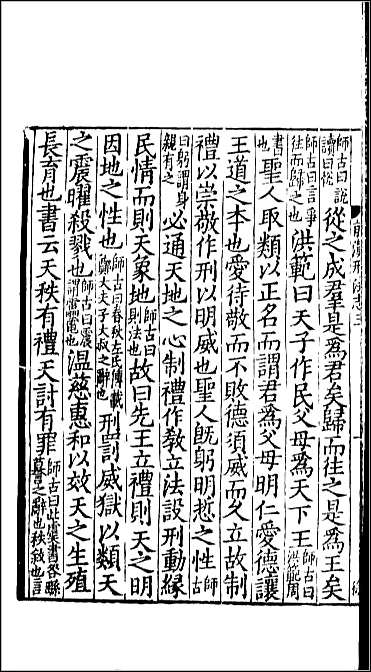 師古曰說
讀曰悅
從之成羣是爲君矣歸而往之是爲王矣
師古曰言爭
往而歸之也
洪範曰天子作民父母爲天下王
師古曰
洪範周
書
也
聖人取類以正名而謂君爲父母明仁愛德讓
王道之本也愛待敬而不敗德須威而久立故制
禮以崇敬作刑以明威也聖人旣躬明悊之性
師古
曰躬謂身
親有之
必通天地之心制禮作敎立法設刑動緣
民情而則天象地
師古曰
則法也
故曰先王立禮則天之明
因地之性也
師古曰春秋左氏傳載
鄭大夫子大叔之辭也
刑罰威獄以類天
之震曜殺戮也
師古曰震
謂雷電也
溫慈惠和以效天之生殖
長育也書云天秩有禮天討有罪
師古曰此虞書咎繇
謩之辭也秩敘也言